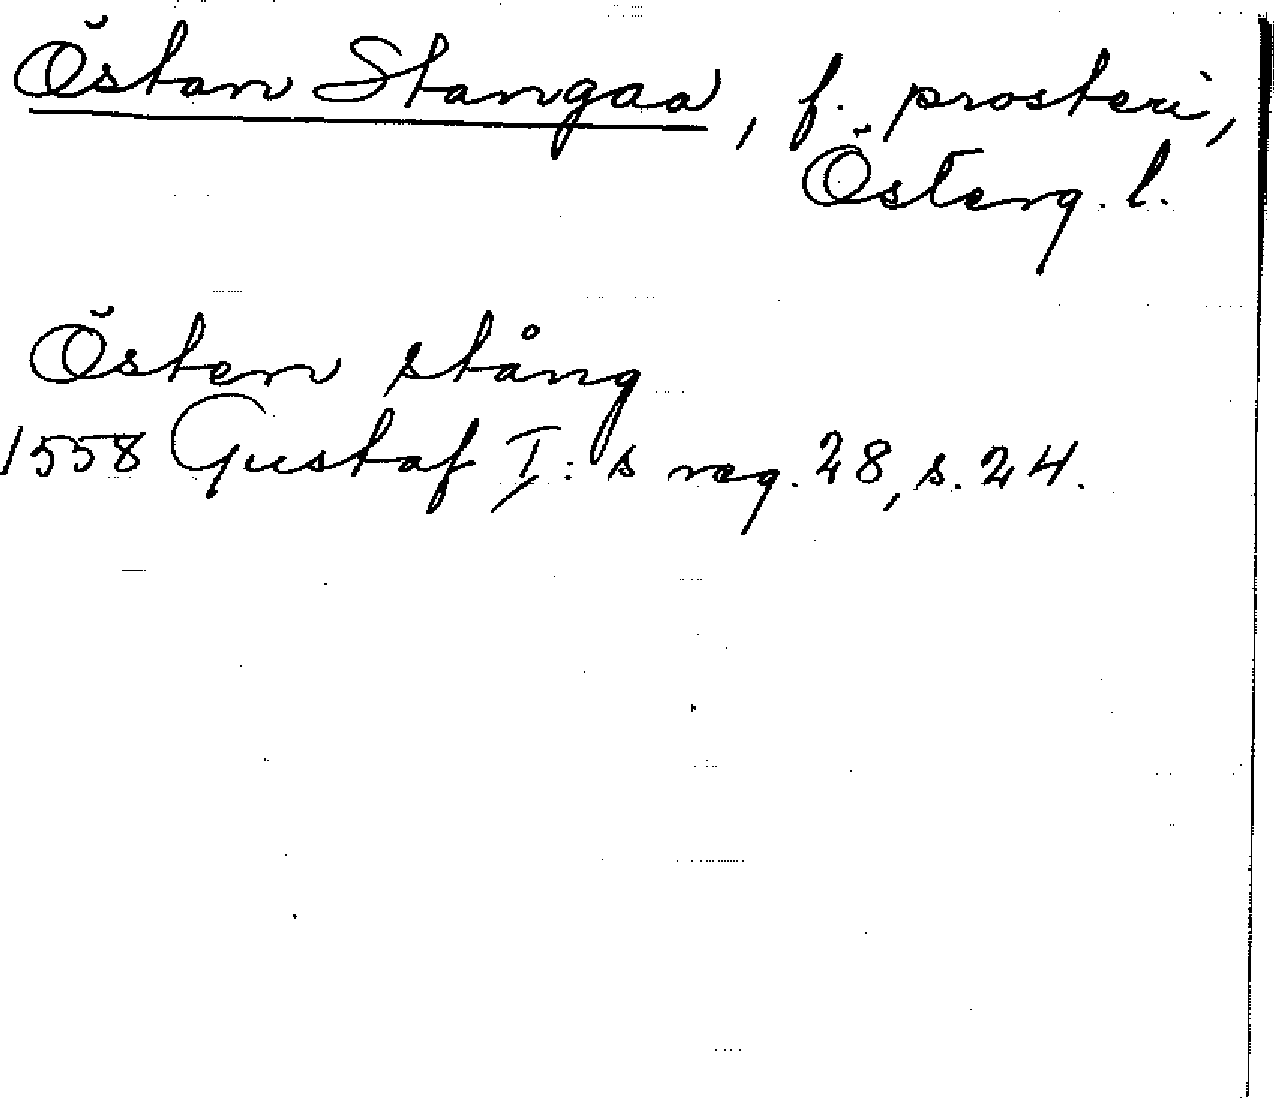 Östan Stangaa, f. prosteri,
Österg. l.
Östen stång
1558 Gustaf I:s reg. 28, s. 24.